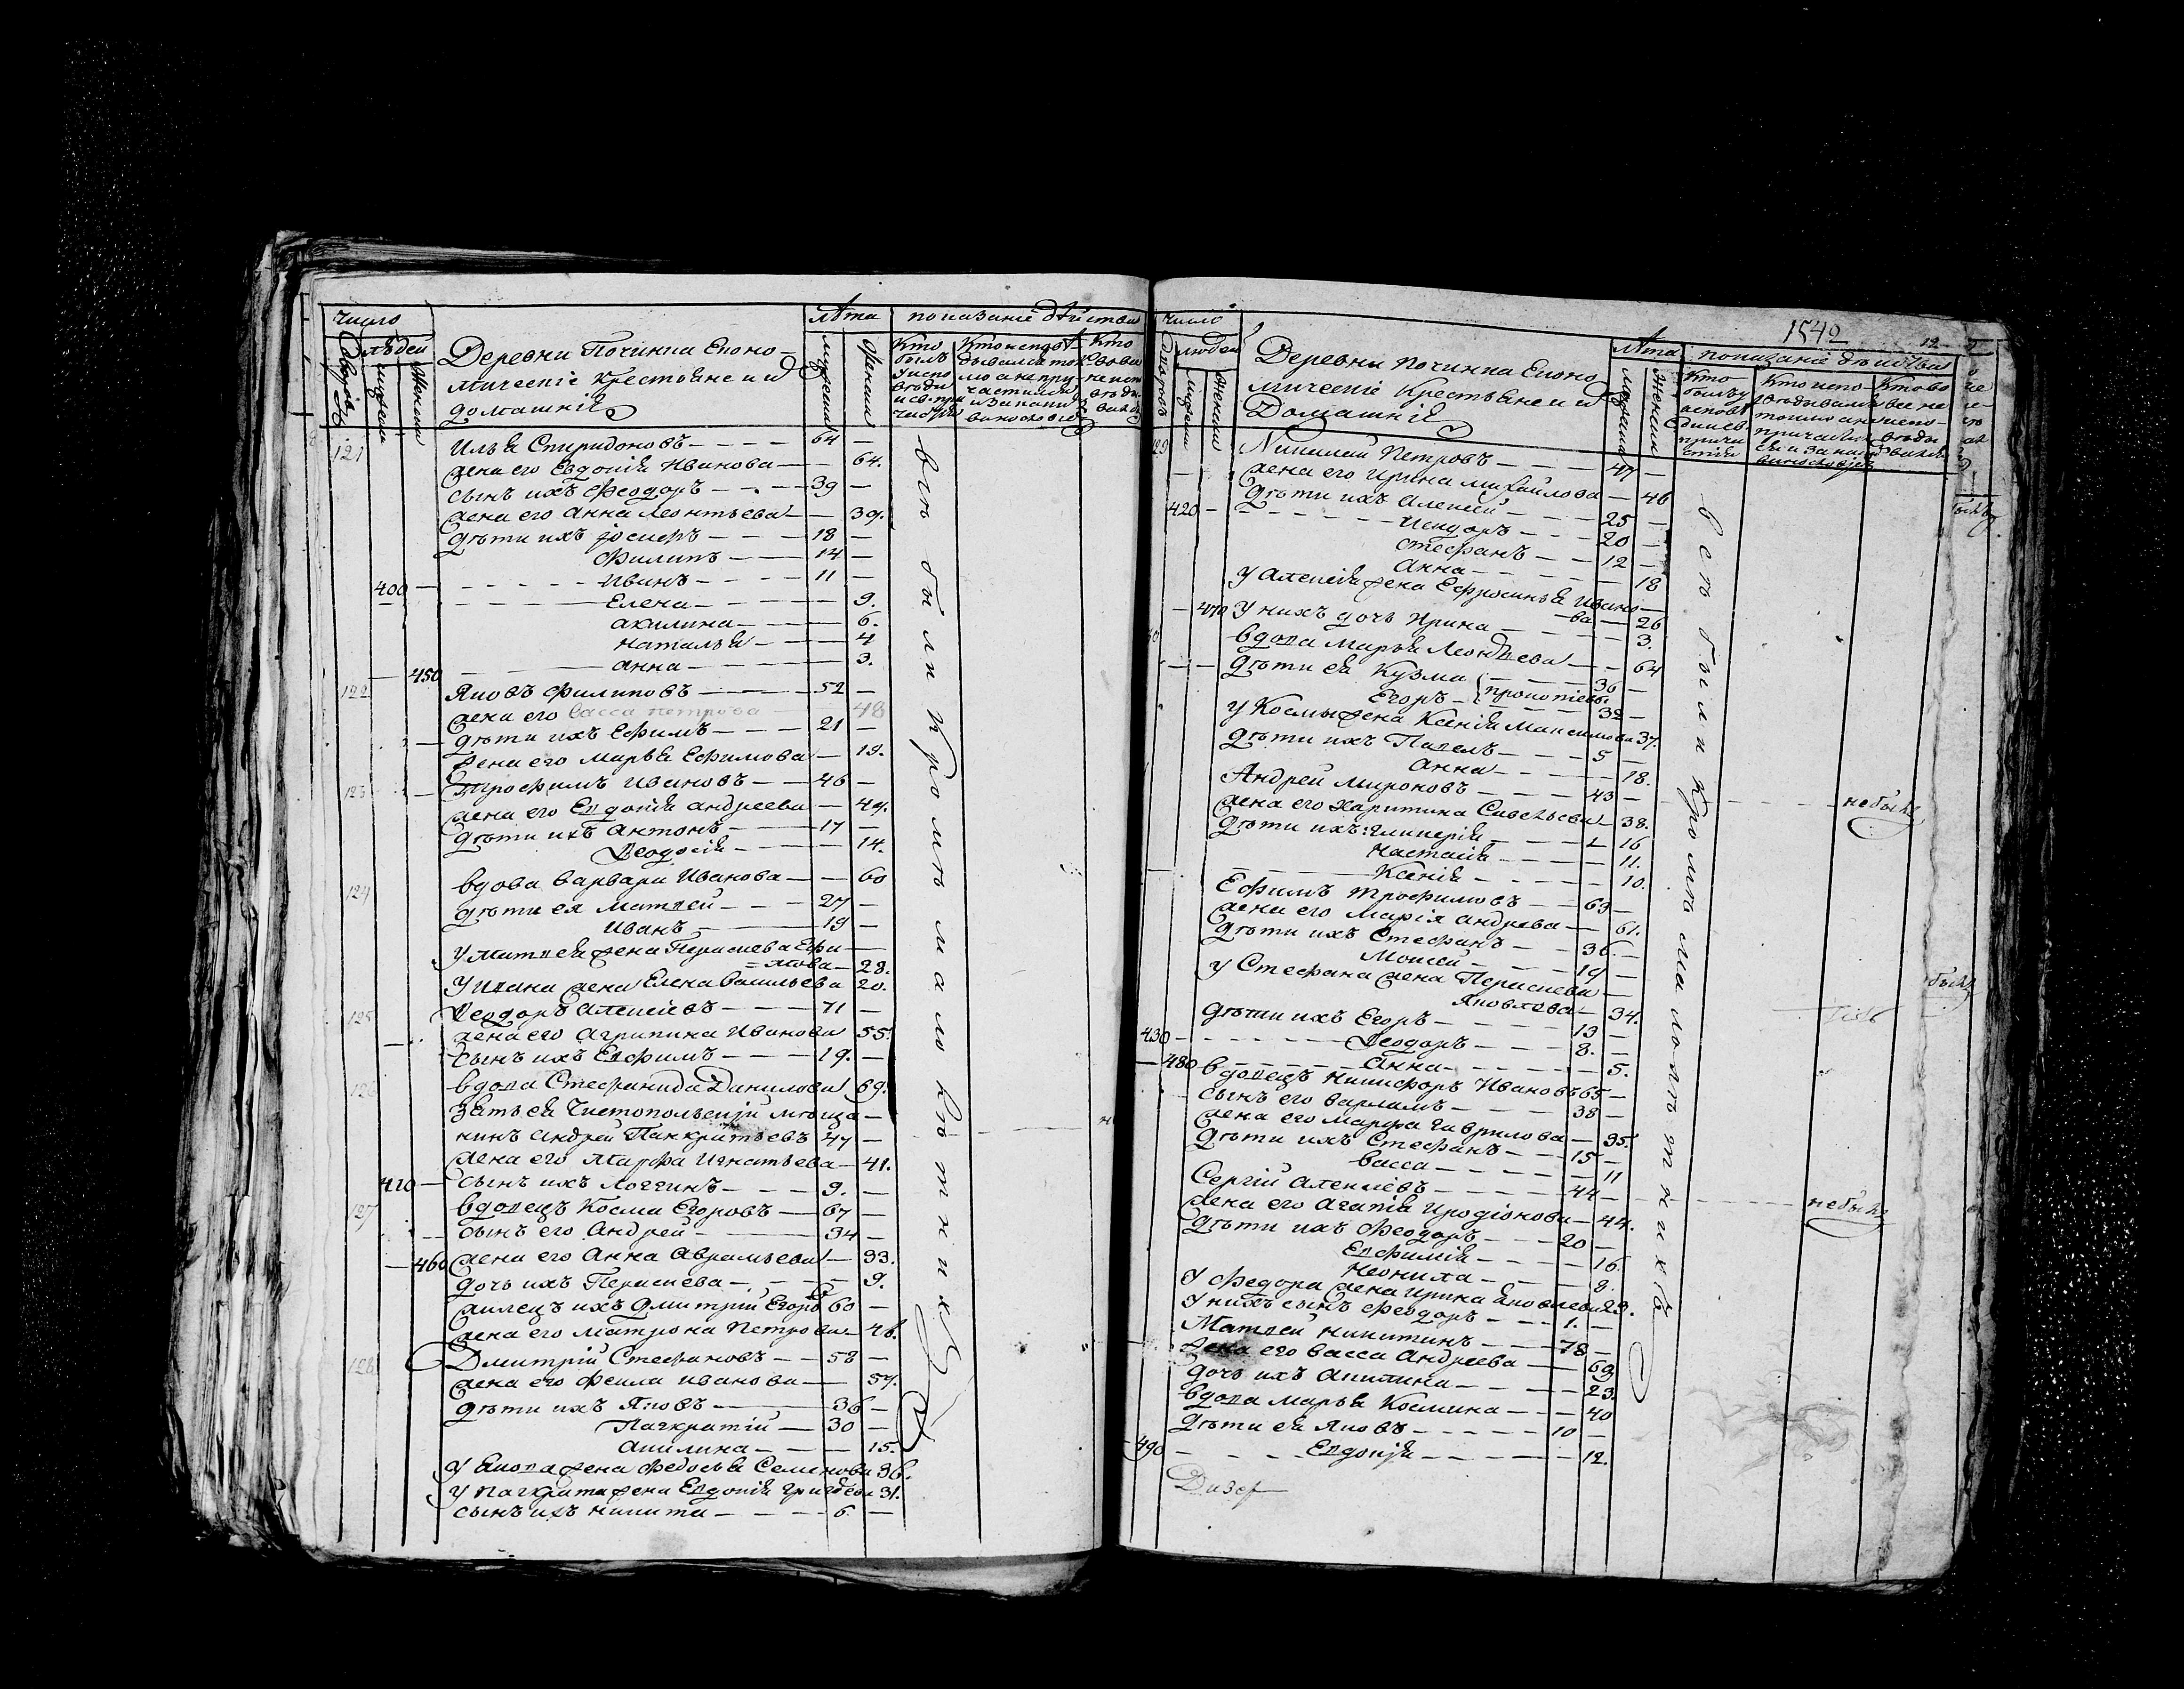 число
лѣта
показанiе дѣйства
людей
дворовъ
мужеска
женска
Деревни Починка Економическiе Крестьяне и и домашнiе
мужеска
женска
Кто былъ у исповѣди и св. причастiя
121
Илья Спиридоновъ 64
жена его Евдокiя Иванова 64.
сынъ ихъ Феодоръ 39
жена его Анна Леонтьева 39.
дѣти ихъ Iосифъ 18
Филипъ 14
400
Иванъ 11
Елена 9.
Акилина 6.
Наталья 4
450
Анна 3.
122
Яковъ Филиповъ 52
жена его Васса Петрова 48
дѣти ихъ Ефимъ 21
жена его Марья Ефимова 19.
123
Трофимъ Ивановъ 46
жена его Евдокiя Андреева 49.
дѣти ихъ Антонъ 17
Ѳеодосiя 14.
124
вдова Варвара Иванова 60
дѣти ея Матвей 27
Иванъ 19
у Матвея жена Параскева Ефи
=мова 28.
у Ивана жена Елена Васильева 20.
125
Ѳеодоръ Алексiевъ 71
жена его Агрипина Иванова 55.
сынъ ихъ Евфимъ 19.
126
вдова Стефанида Данилова 69.
Зять ея Чистопольскiй мѣща
нинъ Андрей Панкратьевъ 47
жена его Марфа Игнатьева 41.
410
сынъ ихъ Логгинъ 9.
127
вдовецъ Косма Егоровъ 67
сынъ его Андрей 34
460
жена его Анна Аврамьева 33.
дочь ихъ Параскева 9.
жилецъ ихъ Дмитрiй Егоровъ 60
жена его Матрона Петрова 46.
128
Дмитрiй Стефановъ 58
жена его Фекла Иванова 57.
дѣти ихъ Яковъ 36
Панкратiй 30
Акилина 15.
у Якова жена Федосья Семенова 36.
у Панкрата жена Евдокiя Григорьева 31.
сынъ ихъ Никита 6.
всѣ были кромѣ малолѣтнихъ
1542
число
лѣта
показанiе дѣйства
людей
мужеска
женска
Деревни Починка Економическiе Крестьяне и и Домашнiе
мужеска
женска
129
Николай Петровъ 47
жена его Ирина Михайлова 46
дѣти ихъ Алексей 25
420
Исидоръ 20
Стефанъ 12
Анна 18
у Алексiя жена Ефросинья Ивано
ва 26
470
у нихъ дочь Ирина 3.
вдова Марья Леонтьева 64
дѣти ея Кузма 36
Прокопiевы
Егоръ 32
у Космы жена Ксенiя Максимова 37.
дѣти ихъ Павелъ 5
Анна 18.
Андрей Мироновъ 43
не былъ
жена его Харитина Савельева 38.
дѣти ихъ Гликерiя 16
Настасiя 11.
Ксенiя 10.
Ефимъ Трофимовъ 63
жена его Марiя Андреева 61.
дѣти ихъ Стефанъ 36.
Моисей 19
у Стефана жена Параскева
Яковлева 34.
дѣти ихъ Егоръ 13
430
Ѳеодоръ 8.
Анна 5.
480
вдовецъ Никифоръ Ивановъ 65
сынъ его Варламъ 38
жена его Марфа Гаврилова 35.
дѣти ихъ Стефанъ 15
Васса 11
Сергiй Алексiевъ 44
не былъ
жена его Агапiя Иродiонова 44.
дѣти ихъ Феодоръ 20
Евфимiя 16.
Неонила 8.
у Федора жена Ирина Яковлева 23.
у нихъ сынъ Феодоръ 1.
Матвей Никитинъ 78
жена его Васса Андреева 69
дочь ихъ Акилина 23
вдова Марья Космина 40
дѣти ея Яковъ 10
490
Евдокiя 12.
всѣ были кромѣ малолѣтнихъ